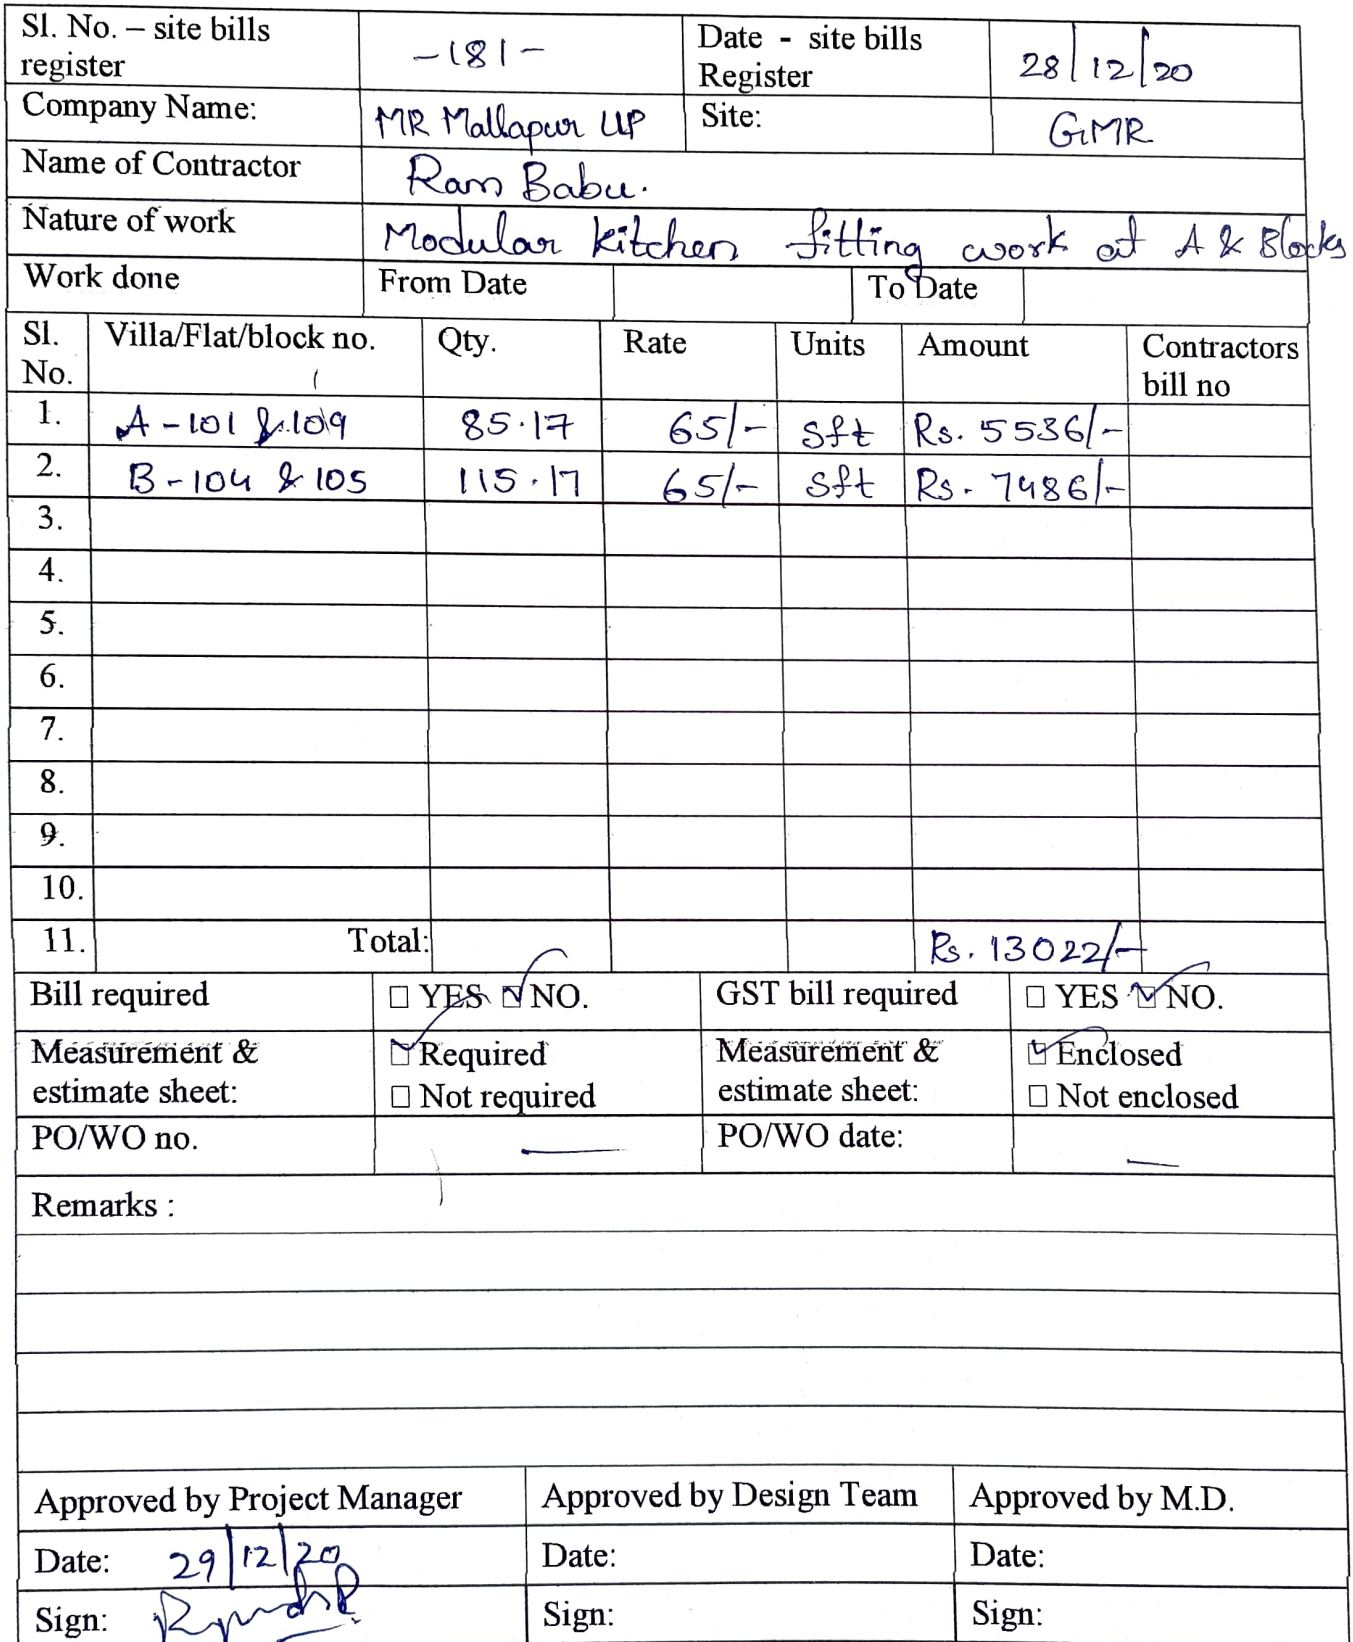 Sl. No. – site bills register -181- Date - site bills Register 28/12/20
Company Name: MR Mallapur LLP Site: GMR
Name of Contractor Ram Babu.
Nature of work Modular kitchen fitting work at A & Blocks
Work done From Date To Date
Sl. No. Villa/Flat/block no. Qty. Rate Units Amount Contractors bill no
1. A-101 & 109 85.17 65/- Sft Rs. 5536/-
2. B-104 & 105 115.17 65/- Sft Rs. 7486/-
3.
4.
5.
6.
7.
8.
9.
10.
11. Total: Rs. 13022/-
Bill required ☐ YES ☑ NO. GST bill required ☐ YES ☑ NO.
Measurement & estimate sheet: ☑ Required ☐ Not required Measurement & estimate sheet: ☑ Enclosed ☐ Not enclosed
PO/WO no. — PO/WO date: —
Remarks :
Approved by Project Manager Approved by Design Team Approved by M.D.
Date: 29/12/20 Date: Date:
Sign: Sign: Sign: